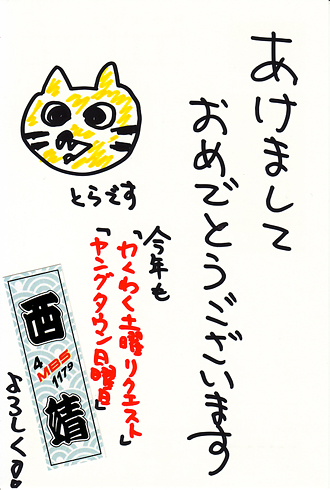 あけまして
おめでとうございます
とらです
今年も
「わくわく土曜リクエスト」
「ヤングタウン日曜日」
西
4
MBS
1179
靖
よろしく!!